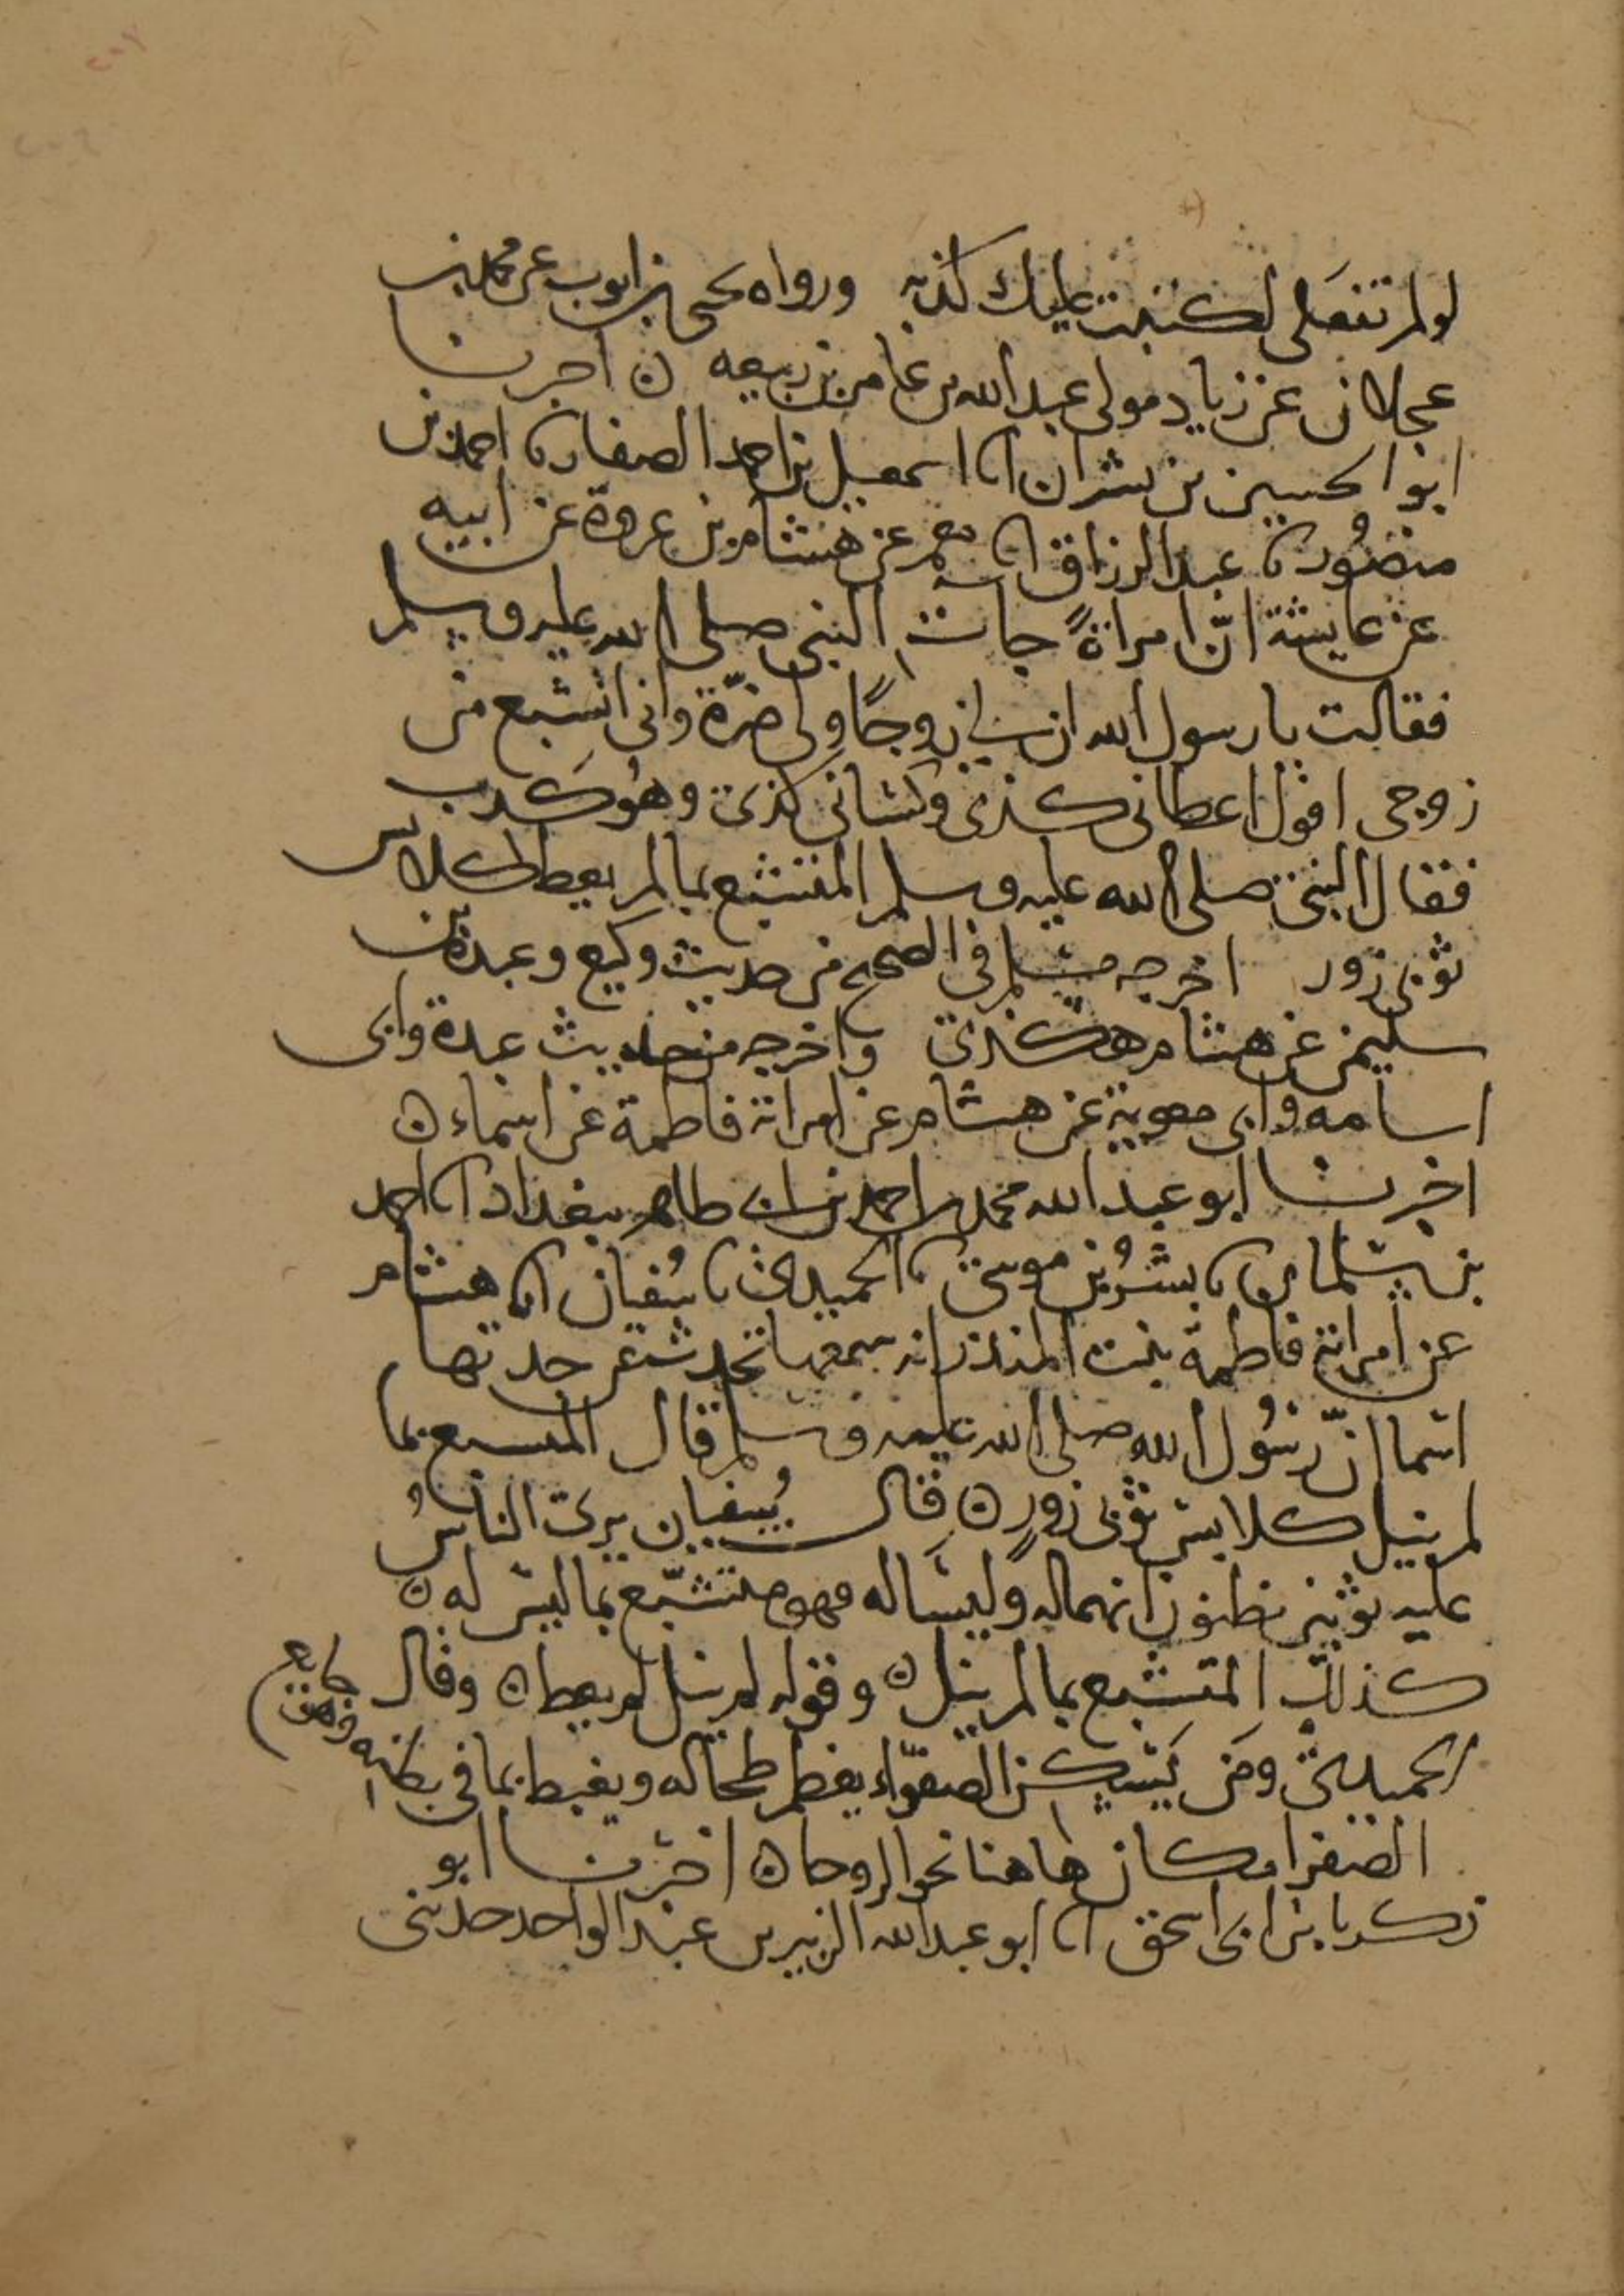 لو لم تفعلي لكتبت عليك كذبه ورواه يحيى بن ايوب عن محمد بن
عجلان عن زياد مولى عبد الله بن عامر بن ربيعه ن اخبرنا
ابو الحسين بن بشران انا اسمعيل بن احمد الصفار نا احمد بن
منصور نا عبد الرزاق انا معمر عن هشام بن عروة عن ابيه
عن عايشة انّ امراةً جات النبى صلى الله عليه وسلم
فقالت يا رسول الله ان لي زوجًا ولى ضرّة وانى اتشبع من
زوجى اقول اعطانى كذى وكسانى كذى وهو كذب
فقال النبى صلى الله عليه وسلم المتشبع بما لم يعط كلابس
ثوبى زور اخرجه مسلم فى الصحيح من حديث وكيع وعبدة بن
سليمن عن هشام هكذى واخرجه من حديث عبدة وابى
اسامه وابى معوية عن هشام عن امراته فاطمة عن اسماء ن
اخبرنا ابو عبد الله محمد بن احمد بن ابى طاهر ببغداد انا احمد
بن سلمان نا بشر بن موسى نا الحميدى نا سفيان نا هشام
عن امراته فاطمة بنت المنذر انه سمعها تحدث عن جدتها
اسما انّ رسول الله صلى الله عليه وسلم قال المتشبع بما
لم ينيل كلابس ثوبى زورٍ ن قال سفيان يرى الناسُ
عليه ثوبين يظنون انهما له وليسا له فهو متشبّع بما ليس له ن
كذلك المتشبع بما لم ينيل ن وقوله لم ينل لم يعط ن وقال
الحميدى ومن يسكن الصفرا يعظم طحاله ويغبط بما فى بطنه وهو جايع
الصفرا مكان هاهنا نحو الروحا ن اخبرنا ابو
زكريا بن ابى اسحق انا ابو عبد الله الزبير بن عبد الواحد حدثنى